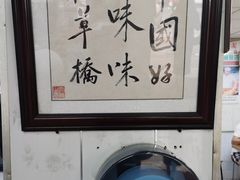 國好
味味
草橋